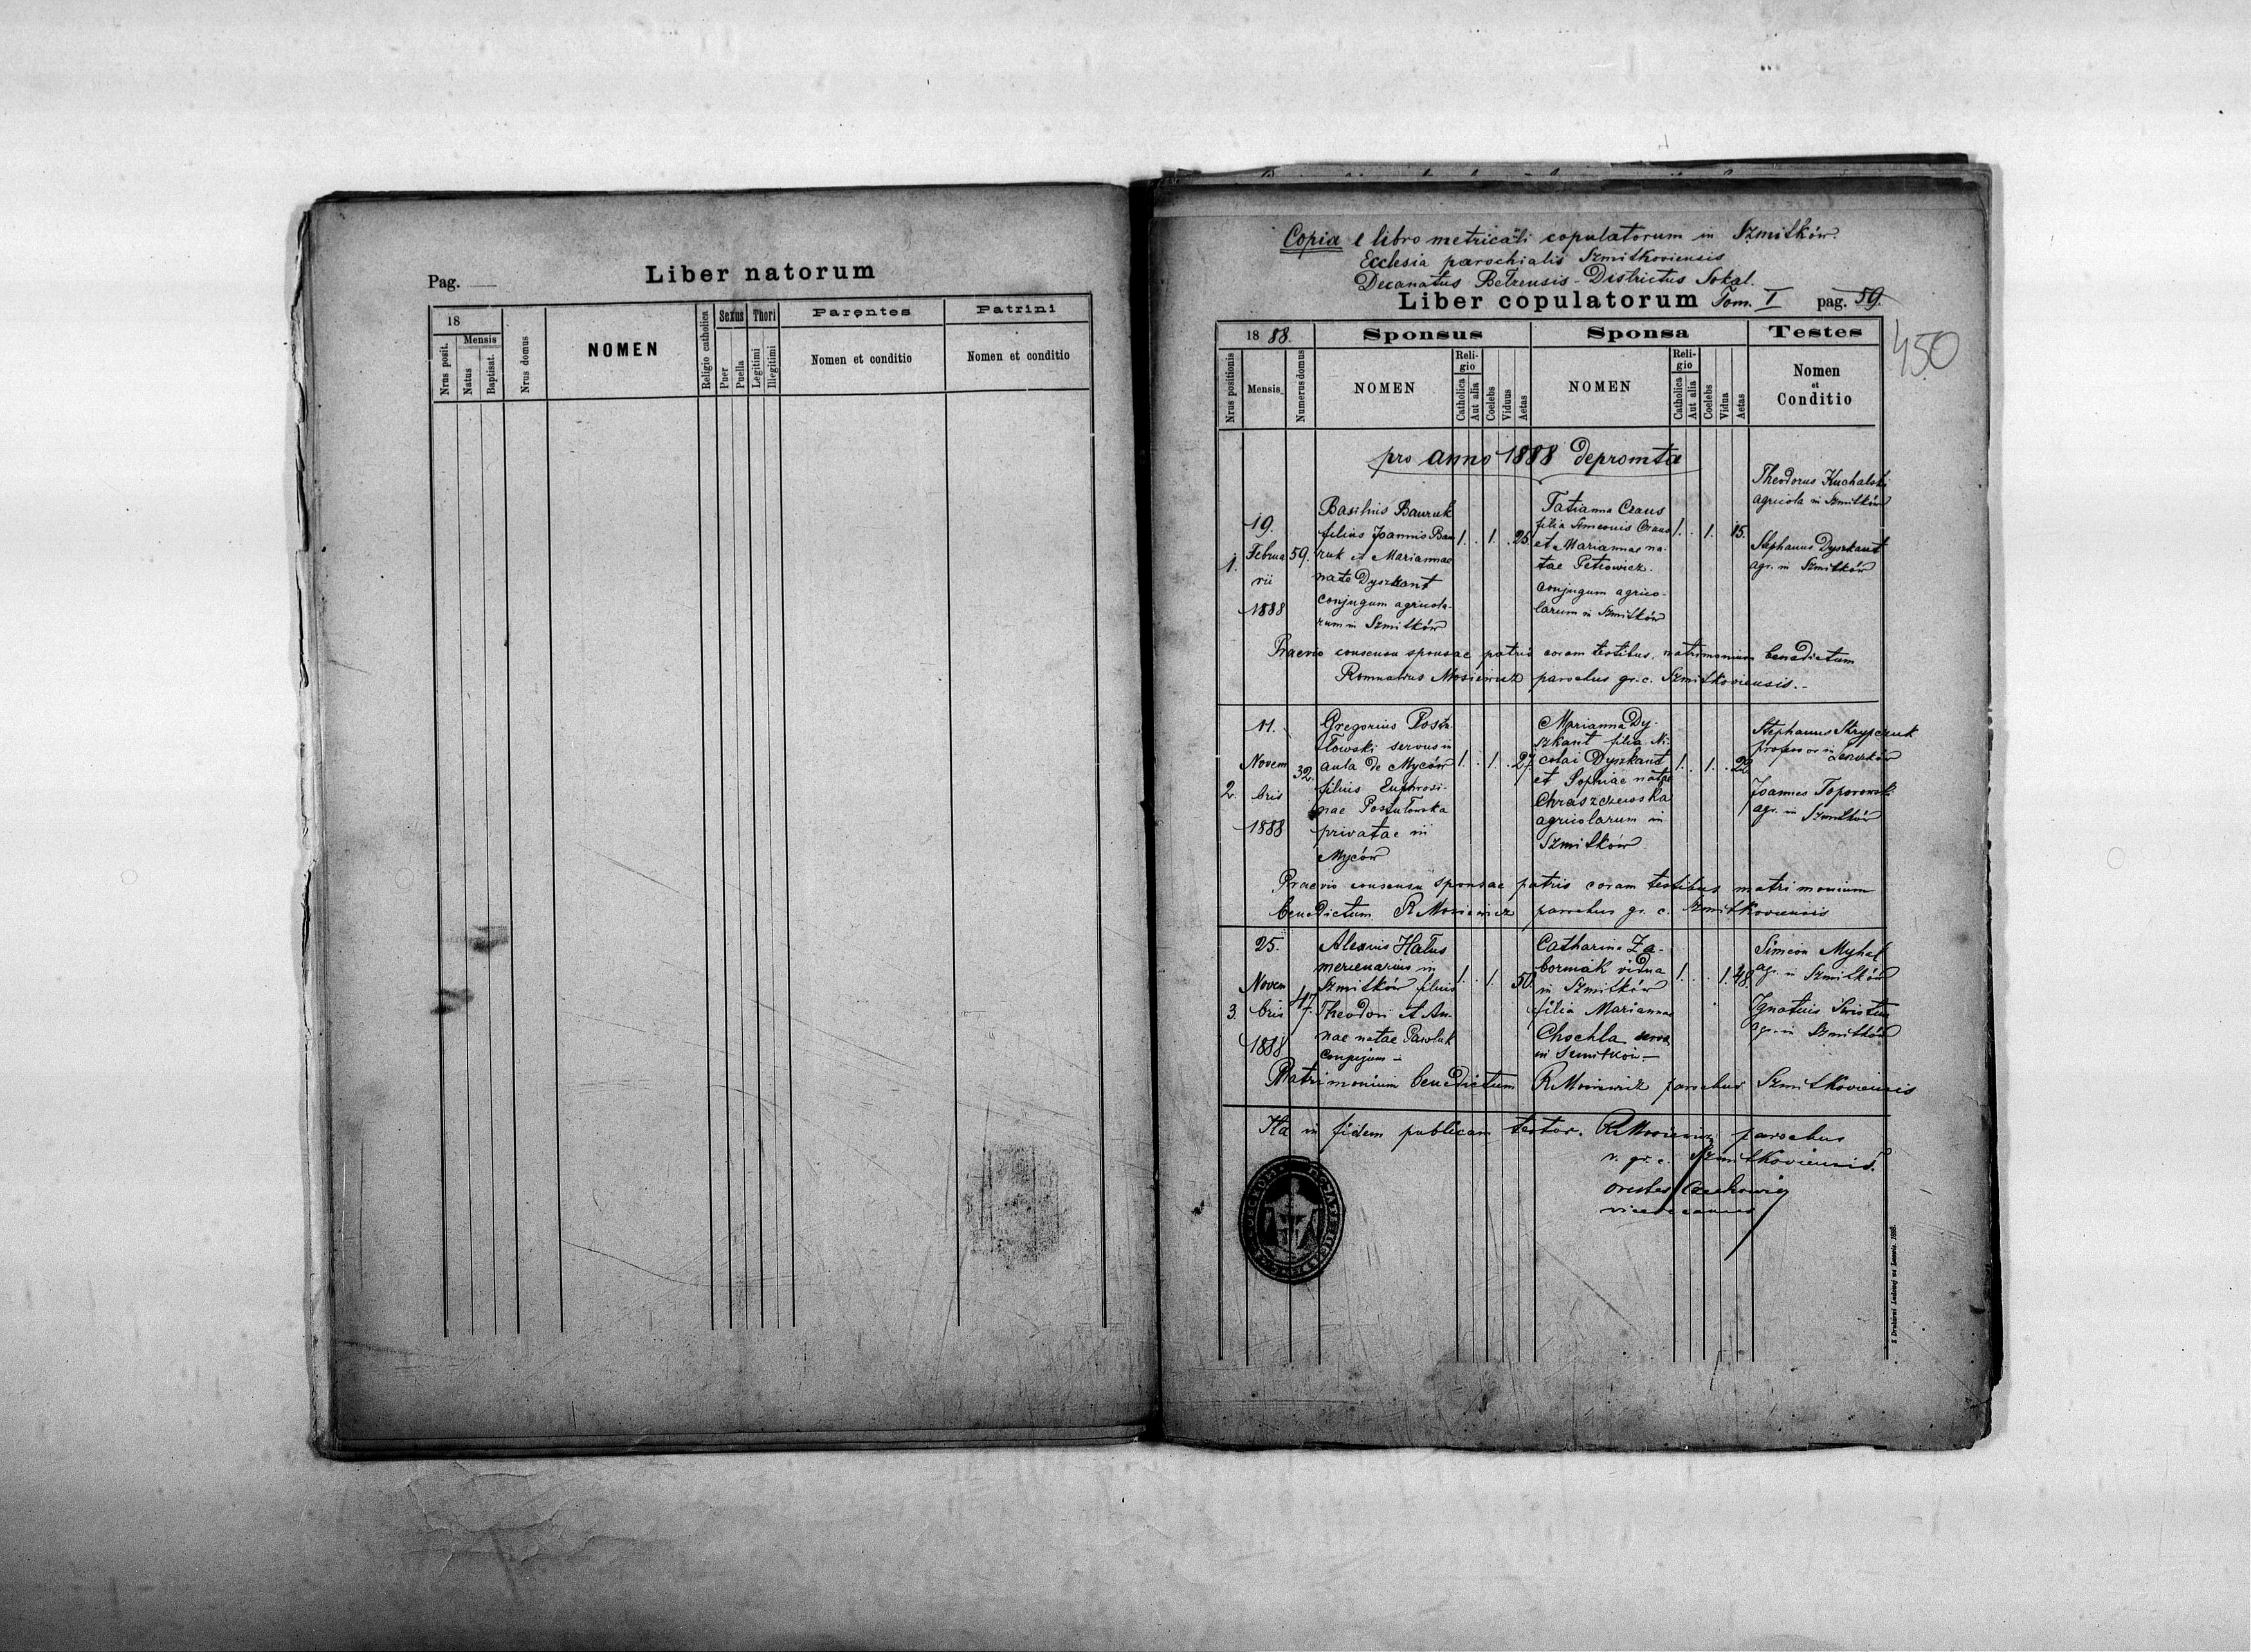 Pag.
Liber natorum
18
Mensis
Nrus posit.
Natus
Baptisat.
Nrus domus
NOMEN
Religio catholica
Sexus
Puer
Puella
Thori
Legitimi
Illegitimi
Parentes
Nomen et conditio
Patrini
Nomen et conditio
Copia e libro metricali copulatorum in Szmitków.
Ecclesia parochialis Szmitkoviensis
Decanatus Belzensis - Districtus Sokal.
Liber copulatorum Tom. I pag. 59.
450
1888.
Sponsus
Sponsa
Testes
Nrus positionis
Mensis
Numerus domus
NOMEN
Religio
Catholica
Aut alia
Coelebs
Viduus
Aetas
NOMEN
Religio
Catholica
Aut alia
Coelebs
Vidua
Aetas
Nomen
et
Conditio
pro anno 1888 depromta
1.
19.
Februa
rii
1888
59.
Basilius Bauruk
filius Joannis Bau
ruk et Mariannae
nate Dyszkant
conjugum agricola-
rum in Szmitków
1. . 1. . 25.
Tatianna Craus
filia Simeonis Craus
et Mariannae na-
tae Petrowicz.
conjugum agrico-
larum in Szmitków
1. . 1. 15.
Theodorus Kuchalski
agricola in Szmitków
Stephanus Dyszkant
agr. in Szmitków
Praevio consensu sponsae patris coram testibus, matrimonium benedictum
Romualdus Mosiewicz parochus gr. c. Szmitkoviensis.-
2.
11.
Novem
bris
1888
32.
Gregorius Postu
łowski servus in
aula de Myców
filius Euphrosi-
nae Postułowska
privatae in
Myców
1. . 1. . 27.
Marianna Dy-
szkant filia Ni-
colai Dyszkant
et Sophiae natae
Chraszczewska
agricolarum in
Szmitków
1. . 1. . 22
Stephanus Skrypczuk
professor in
Joannes Toporowski
agr. in Szmitków
Praevio consensu sponsae patris coram testibus matrimonium
benedictum R Mosiewicz parochus gr. c. Szmitkoviensis
3.
25.
Novem
bris
1888
47.
Alexius Hałus
mercenarius in
Szmitków filius
Theodori et An-
nae natae Pawluk
conjugum -
1. . 1. 50.
Catharina Za-
borniak vidua
in Szmitków
filia Marianna
Chochla
in Szmitków.-
1. . . 1. 48.
Simeon Myhal
agr. in Szmitków
Ignatius
agr. in Szmitków
Matrimonium benedictum R Mosiewicz parochus Szmitkoviensis
Ita in fidem publicam testor. R Mosiewicz parochus
r. gr. c. Szmitkoviensis.
Orestes Czechowicz
vicedecanus
Z Drukarni Ludowej we Lwowie.